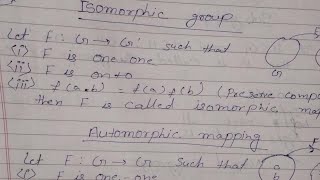 Isomorphic group
Let F : G → G' such that
(i) F is one-one
(ii) F is onto
(iii) f(a·b) = f(a) f(b) (Preserve compo
then F is called isomorphic map
G
Automorphic mapping
Let F : G → G such that
(i) F is one-one
F
a
b